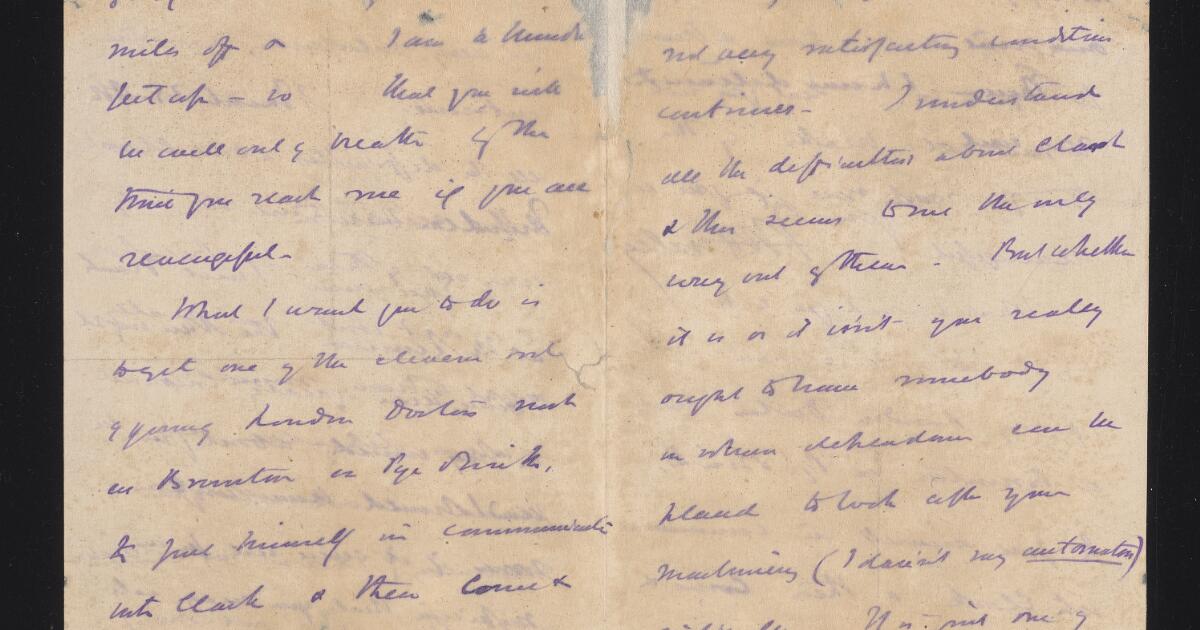 miles off & I am a hundred
feet up – so that you will
be well out of breath by the
time you reach me if you are
revengeful.
What I want you to do is
to get one of the cleverer sort
of young London Doctors such
as Brunton or Pye Smith,
to put himself in communication
with Clark & then come &
not very satisfactory condition
continues – I understand
all the difficulties about Clark
& this seems to me the only
way out of them – But whether
it is or it isn't you really
ought to have somebody
in whom dependance can be
placed to look after your
machinery (I daren't say automaton)
It is just one of